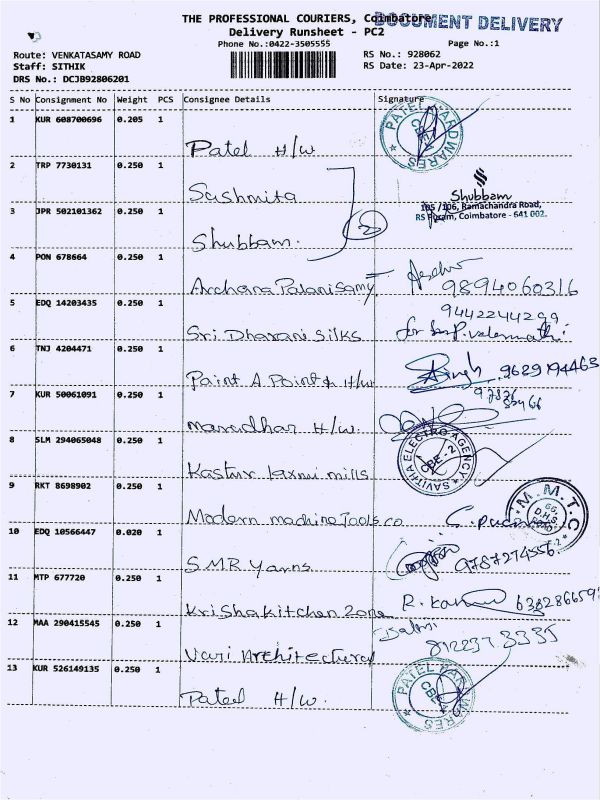 THE PROFESSIONAL COURIERS, Coimbatore
DOCUMENT DELIVERY
Delivery Runsheet - PC2
Phone No.:0422-3505555
Page No.:1
Route: VENKATASAMY ROAD
RS No.: 928062
Staff: SITHIK
RS Date: 23-Apr-2022
DRS No.: DCJB92806201
S No Consignment No Weight PCS Consignee Details Signature
1 KUR 608700696 0.205 1
PATEL HARDWARES
CBE
Patel H/W
2 TRP 7730131 0.250 1
Sashmita
Shubbam
105 /106, Ramachandra Road,
RS Puram, Coimbatore - 641 002.
3 JPR 502101362 0.250 1
Shubbam.
4 PON 678664 0.250 1
Archana Palanisamy
9894060316
5 EDQ 14203435 0.250 1
9442244299
Sri Dharani Silks
for
6 TNJ 4204471 0.250 1
Paint A Point & H/W
Singh 9629194463
7 KUR 50061091 0.250 1
marudhar H/W.
8 SLM 294065048 0.250 1
SAVITHA ELECTRO AGENCY
CBE-2
Kastur laxmi mills
9 RKT 8698902 0.250 1
M.M.T.C
Modern machine Tools co
10 EDQ 10566447 0.020 1
S.M.R Yarns
9787274356
11 MTP 677720 0.250 1
Krisha kitchen Zone
R.
12 MAA 290415545 0.250 1
Vari Architectural
13 KUR 526149135 0.250 1
PATEL HARDWARES
CBE
Patel H/W.